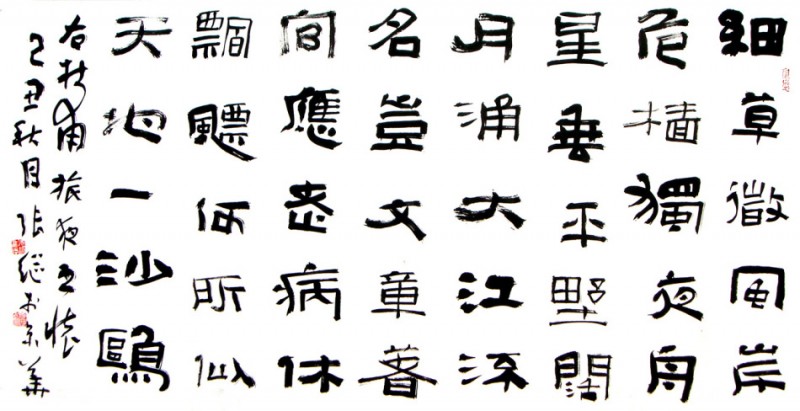 細草微風岸
危檣獨夜舟
星垂平野闊
月涌大江流
名豈文章著
官應老病休
飄飃何所似
天地一沙鷗
右杜甫旅夜書懷
己丑秋月張繼於京華